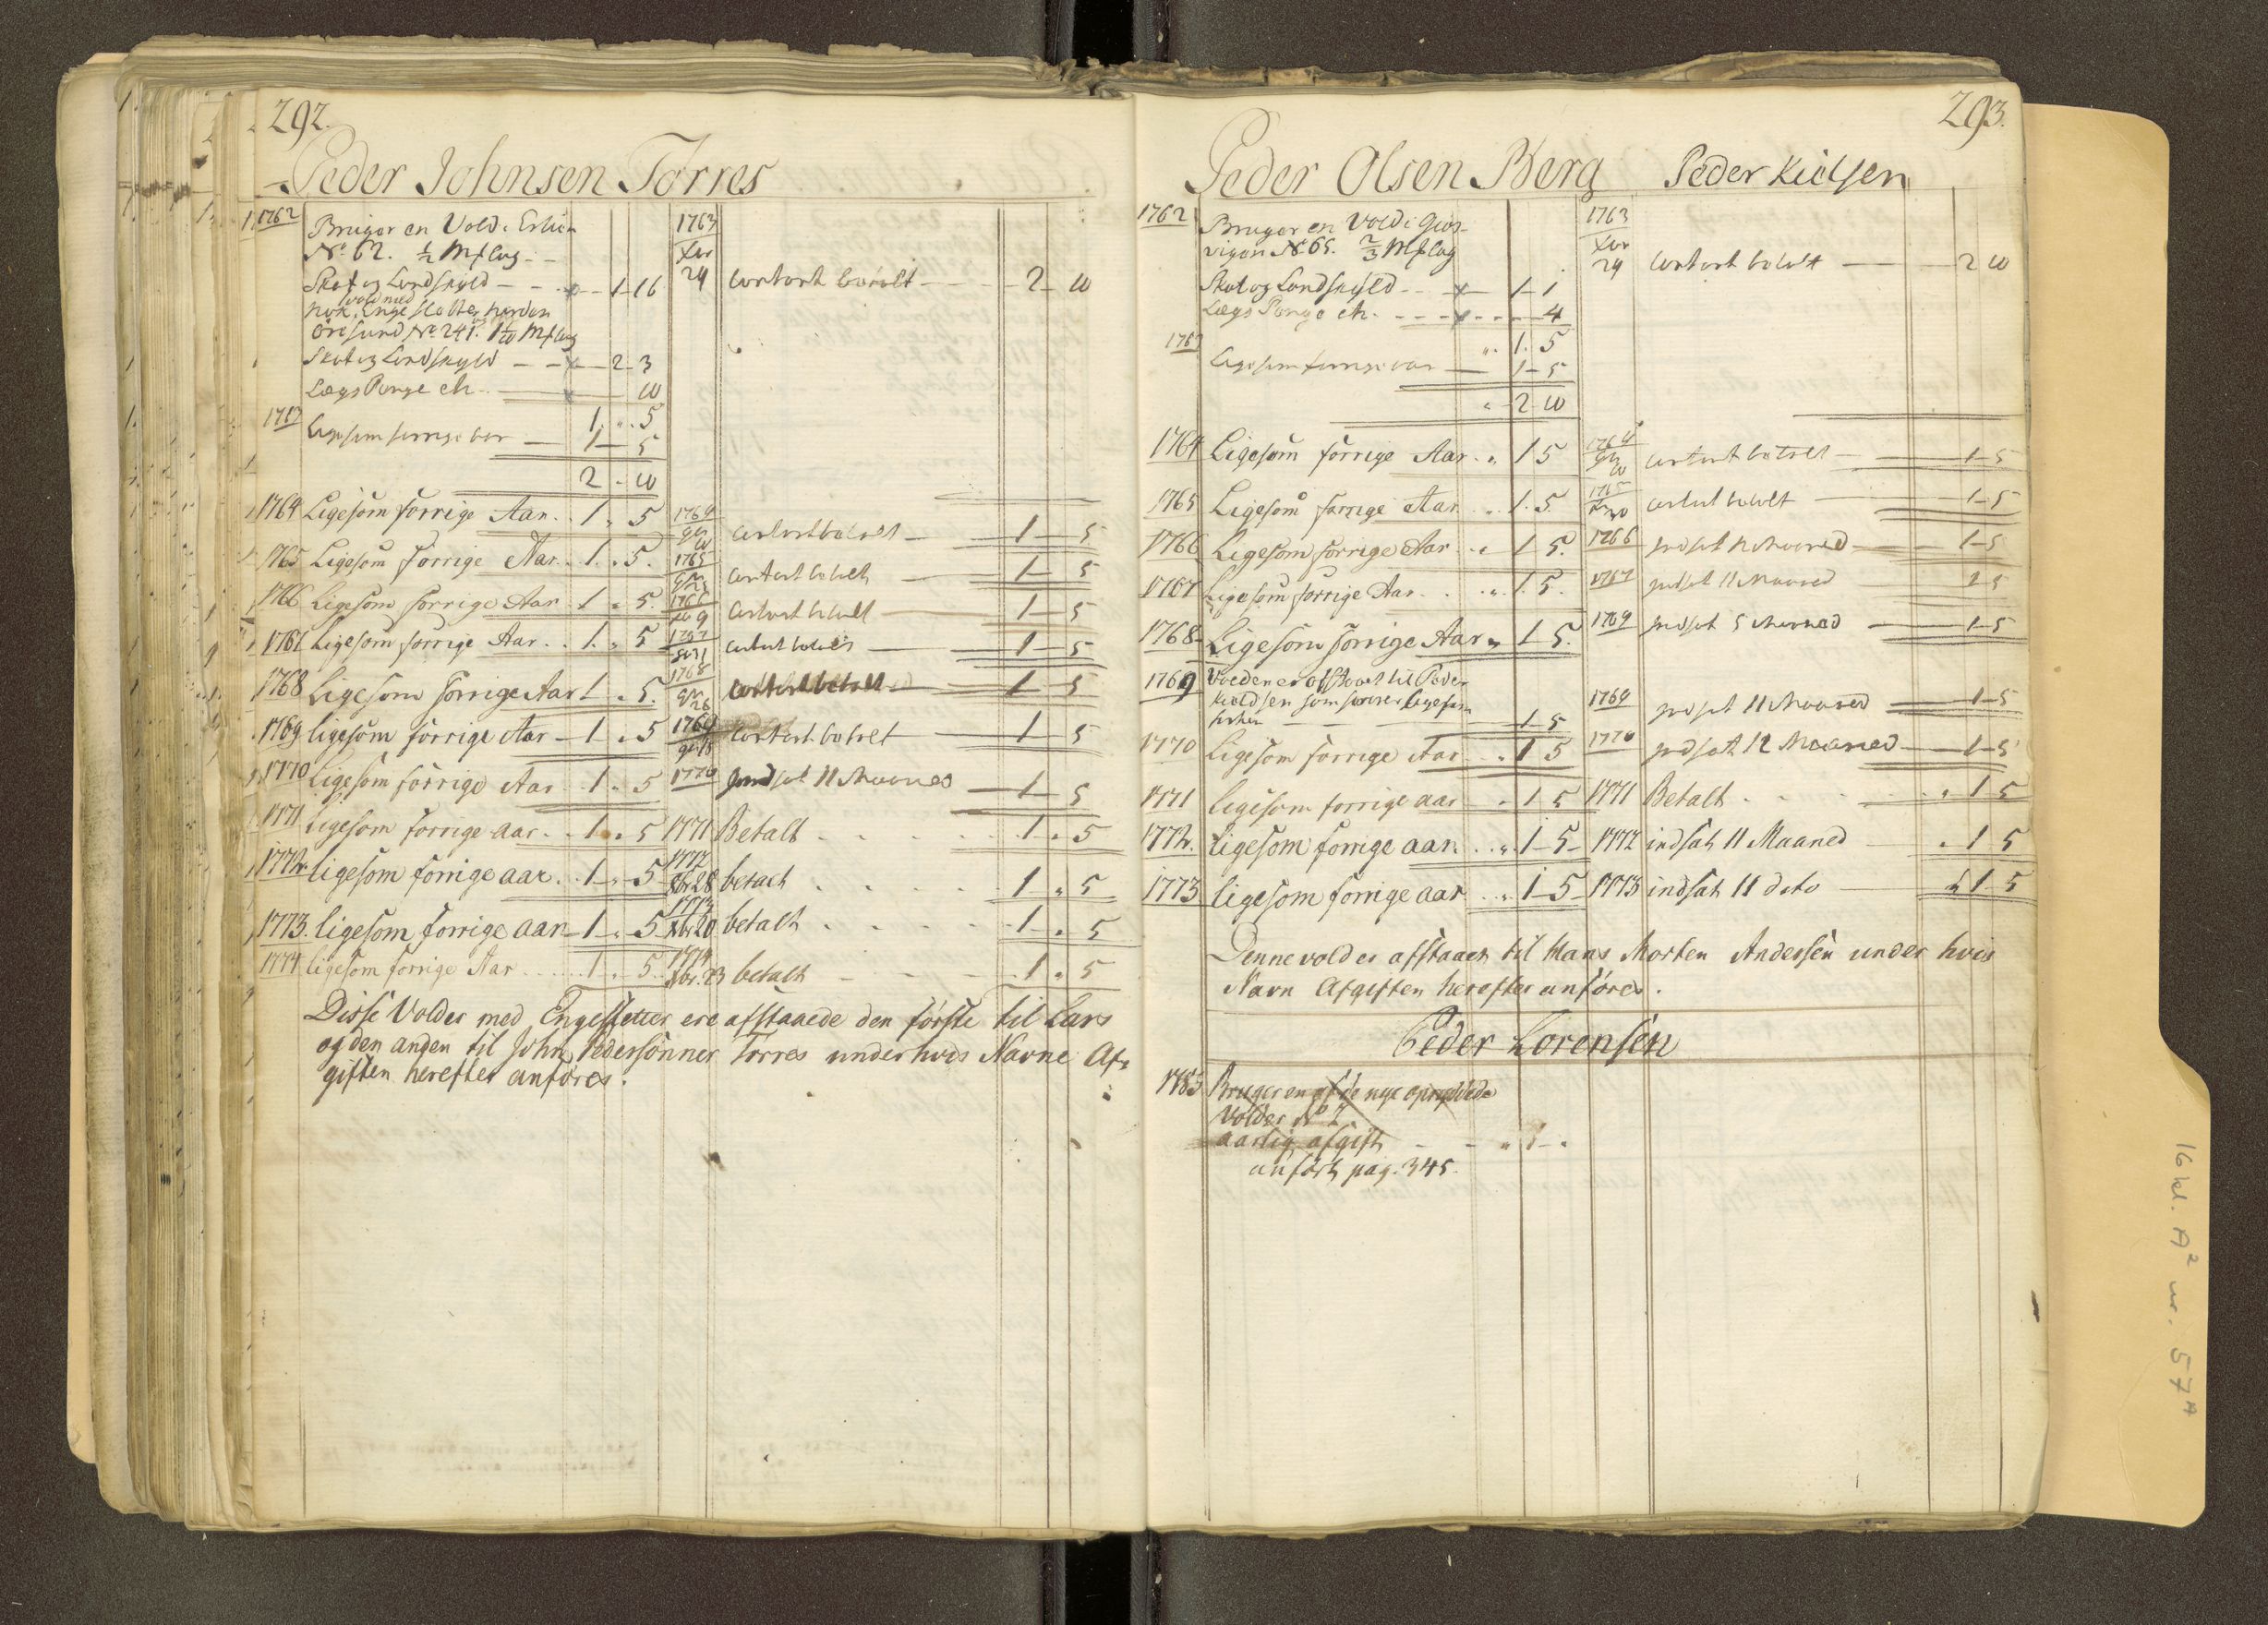 292.
Peder Johnsen Torres
1762 Bruger en Vold i
No 62. 1/2 Mæslag - -
Skat og Landskyld - - - 1 - 16
nok vold med Enge sletter norden
øresund No 241. Mæslag
Skat og Landskyld - - 2 - 3
Lægs Penge etc. - 10
1 " 5
1763 Ligesom forrige aar - 1 - 5
2 - 10
1764 Ligesom forrige Aar. . 1 " 5
1765 Ligesom forrige Aar. . 1 " 5.
1766 Ligesom forrige Aar 1 " 5.
1767 Ligesom forrige Aar. . 1. " 5
1768 Ligesom forrige Aar 1 " 5.
1769 ligesom forrige Aar - 1 " 5
1770 Ligesom forrige Aar 1 " 5
1771 ligesom forrige aar. . 1 " 5
1772. ligesom forrige aar. . 1 - " - 5
1773. ligesom forrige aar - 1 - " - 5
1774 ligesom forrige Aar . . . . 1 " 5
1763
Xbr
29 contant betalt - - - 2 - 10
1764 contant betalt - 1 - 5
1765 contant betalt - 1 - 5
1766 contant betalt - 1 - 5
1767 contant betalt - 1 - 5
1768 contant betalt 1 - 5
1769 contant betalt - 1 - 5
1770 indsat 11 Maaned - 1 - 5
1771 Betalt . . . . . 1 " 5
1772
Xbr 28 betalt . . . . 1 " 5
1773
Xbr 20 betalt . . . . . 1 " 5
1774
Xbr. 23 betalt - - - - 1 " 5
Disse Volder med Engesletter ere afstaaede den første til Lars
og den anden til John Pedersønner Torres under hvis Navne Af-
giften herefter anføres.
293.
Peder Olsen Berg Peder Kielsen
1762 Bruger en Vold i Giös-
vigen No 65. 2/3 Mæslag
Skat og Landskyld - - 1 - 1
Lægs Penge etc. - - - - 4
" 1. 5
1763 Ligesom forrige aar - 1 - 5
" 2 10
1764 Ligesom forrige Aar . " 1 5
1765 Ligesom forrige Aar . " 1. 5
1766 Ligesom forrige Aar . " 1 5.
1767 Ligesom forrige Aar . . " 1. 5.
1768 Ligesom forrige Aar " 1 5.
1769 Volden er afstaaet til Peder
Kieldsen som svarer ligesom
forhen - - - 1 - 5
1770 Ligesom forrige Aar . " 1 5
1771 ligesom forrige aar " 1 5
1772. ligesom forrige aar. . " 1 - 5 -
1773 ligesom forrige aar . . " 1 - 5
1763
Xbr
29 contant betalt - 2 10
1764 contant betalt - 1 - 5
1765 contant betalt - 1 - 5
1766 indsat Maaned - 1 - 5
1767 indsat 11 Maaned 1 5
1769 indsat 5 Maaned - 1 - 5
1769 indsat 11 Maaned - 1 - 5
1770 indsat 12 Maaned - 1 - 5
1771 Betalt . . . . " 1 5
1772 indsat 11 Maaned - " 1 5
1773 indsat 11 dito - " 1 5
Denne vold er afstaaet til Hans Morten Andersen under hvis
Navn Afgiften herefter anføres.
Peder Lorensen
1785 Bruger en af de nye opryddede
Volder No 7
aarlig afgift - - " 1 - "
anført pag. 345.
16 kl. A² nr. 57A